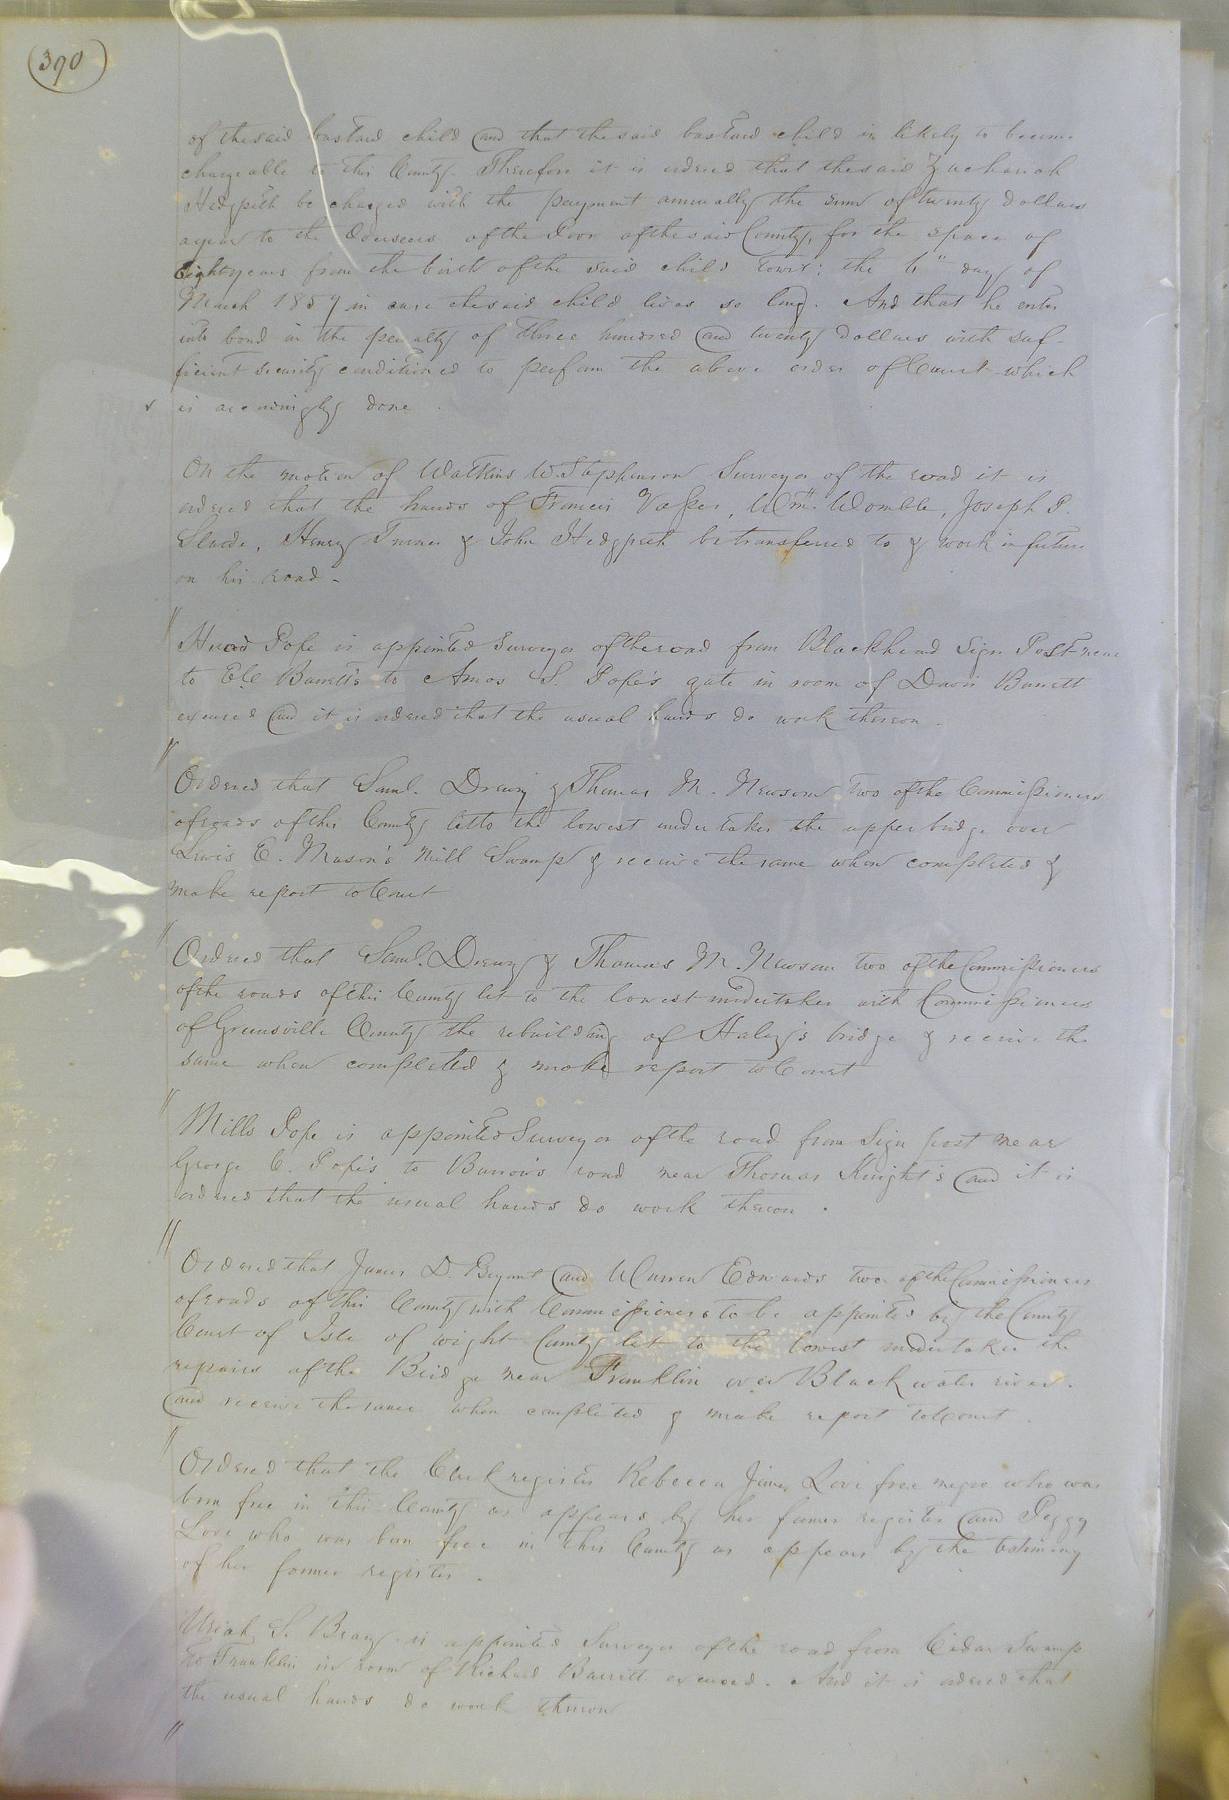 (390)
of the said bastard child and that the said bastard child is likely to become
chargeable to this County. Therefore it is ordered that the said Zachariah
Hedgpeth be charged with the payment annually the sum of twenty dollars
a year to the Overseers of the Poor of the said County, for the space of
Eight years from the birth of the said child towit; the 6" day of
March 1857 in case the said child lives so long. And that he enter
into bond in the penalty of three hundred and twenty dollars with suf-
ficient security conditioned to perform the above order of Court which
is accordingly done.
On the motion of Watkins W. Stephenson Surveyor of the road it is
ordered that the hands of Francis Vasser, Wm. Womble, Joseph P.
Slade, Henry Turner & John Hedgpeth be transferred to & work in future
on his road-
Pope is appointed Surveyor of the road from Blackhead Sign Post near
to Eli Barrett's to Amos S. Pope's gate in room of Davis Barrett
excused and it is ordered that the usual hands do work thereon.
Ordered that Saml. Drewry & Thomas M. Newsom two of the Commissioners
of roads of this County let to the lowest undertaker the upper bridge over
Lewis E. Mason's Mill Swamp & receive the same when completed &
make report to Court
Ordered that Saml. Drewry & Thomas M. Newsom two of the Commissioners
of the roads of this County let to the lowest undertaker with Commissioners
of Greensville County the rebuilding of Haley's bridge & receive the
same when completed & make report to Court
Mills Pope is appointed Surveyor of the road from Sign post near
George C. Pope's to Barron's road near Thomas Knight's and it is
ordered that the usual hands do work thereon.
Ordered that James D. Bryant and Warren Edwards two of the Commissioners
of roads of this County with Commissioners to be appointed by the County
Court of Isle of wight County let to the lowest undertaker the
repairs of the Bridge near Franklin over Black water river.
and receive the same when completed & make report to Court.
Ordered that the Clerk register Rebecca Jane Love free negro who was
born free in this County as appears by her former register and Peggy
Love who was born free in this County as appears by the testimony
of her former register.
Uriah S. Bray is appointed Surveyor of the road from Cedar Swamp
to Franklin in room of Richard Barrett excused. And it is ordered that
the usual hands do work thereon